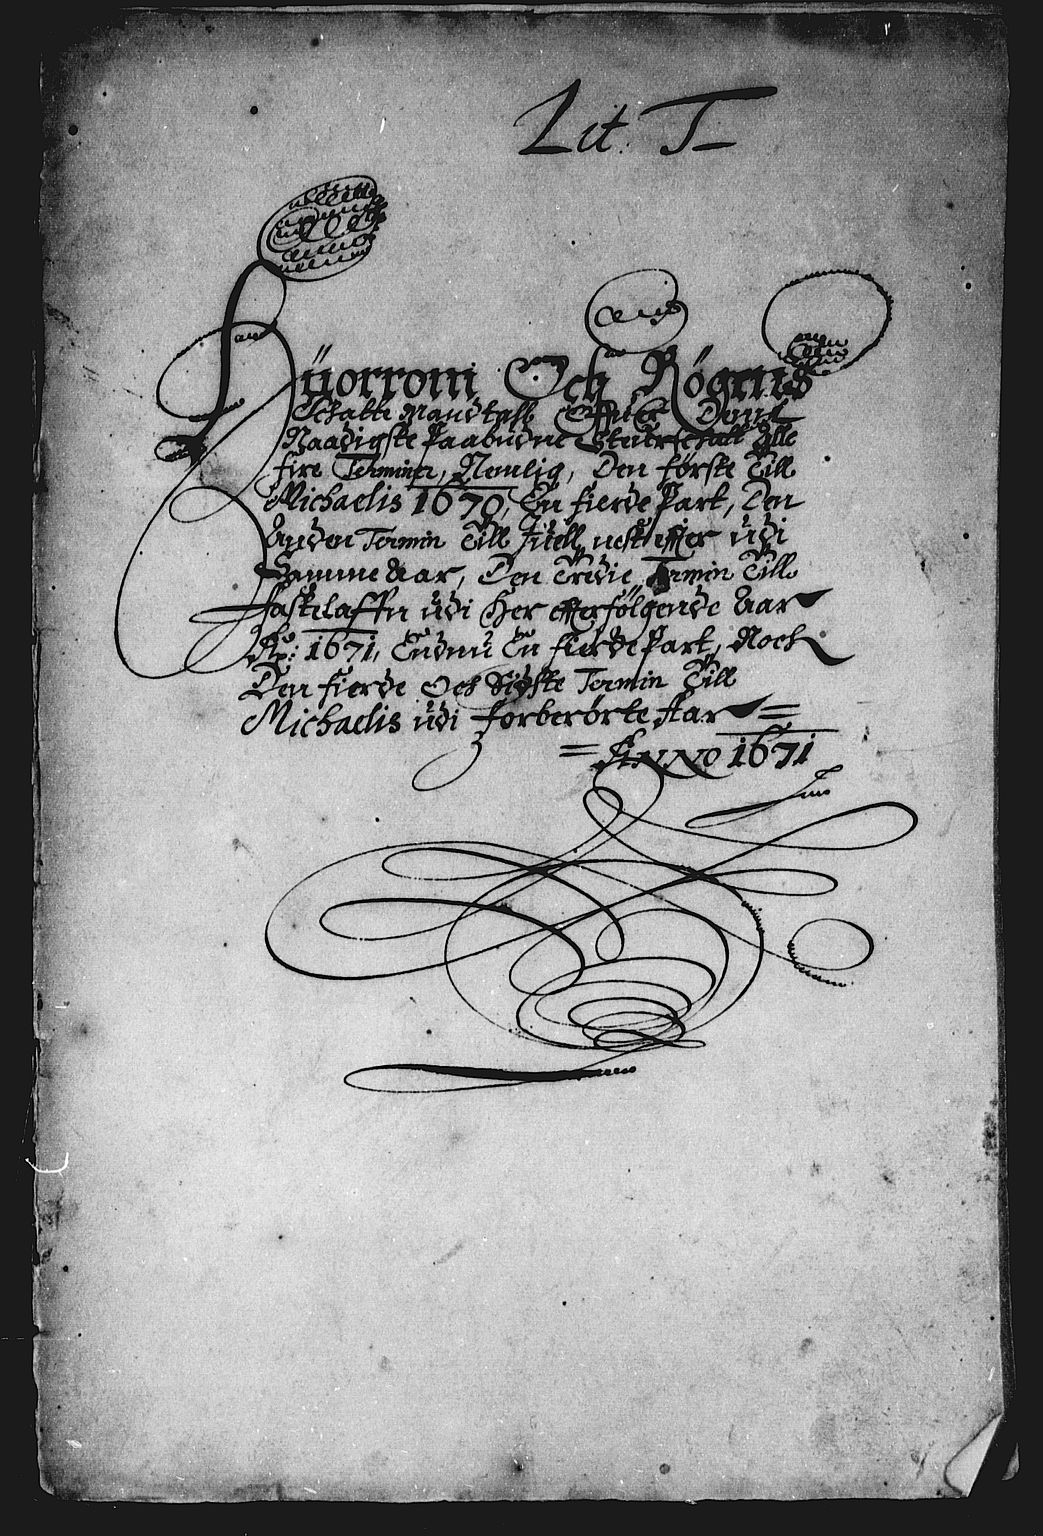 Lit. T
Hüorrom Och Rögens
Schatte Mandtall Effter Denne
Naadigste Paabudne Skatt Till
fire Terminer, Nemlig, Den første Till
Michaelis 1670, En fierde Part, Den
Anden Termin Till Jüell nest effter üdi
Samme Aar, Den Tredie Termin Till
Fastelaffn üdi Her effterfölgende Aar
Ao: 1671, Endnü En fierde Part, Noch
Den fierde Och Sidste Termin Till
Michaelis üdi forberörte Aar =
= ANNO 1671